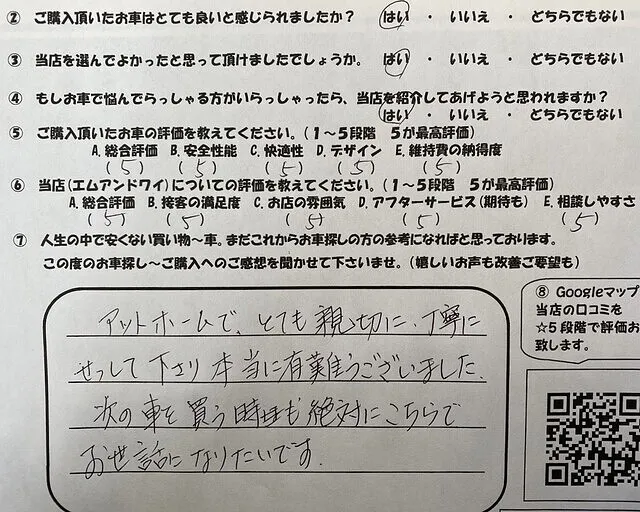 ② ご購入頂いたお車はとても良いと感じられましたか？ はい ・ いいえ ・ どちらでもない
③ 当店を選んでよかったと思って頂けましたでしょうか。 はい ・ いいえ ・ どちらでもない
④ もしお車で悩んでらっしゃる方がいらっしゃったら、当店を紹介してあげようと思われますか？
はい ・ いいえ ・ どちらでもない
⑤ ご購入頂いたお車の評価を教えてください。（１〜５段階 ５が最高評価）
A. 総合評価 B. 安全性能 C. 快適性 D. デザイン E. 維持費の納得度
(5) (5) (5) (5) (5)
⑥ 当店（エムアンドワイ）についての評価を教えてください。（１〜５段階 ５が最高評価）
A. 総合評価 B. 接客の満足度 C. お店の雰囲気 D. アフターサービス（期待も） E. 相談しやすさ
(5) (5) (5) (5) (5)
⑦ 人生の中で安くない買い物〜車。まだこれからお車探しの方の参考になればと思っております。
この度のお車探し〜ご購入へのご感想を聞かせて下さいませ。（嬉しいお声も改善ご要望も）
アットホームで、とても親切に、丁寧に
せっして下さり本当に有難うございました。
次の車を買う時も絶対にこちらで
お世話になりたいです。
⑧ Googleマップ
当店の口コミを
☆５段階で評価お
致します。